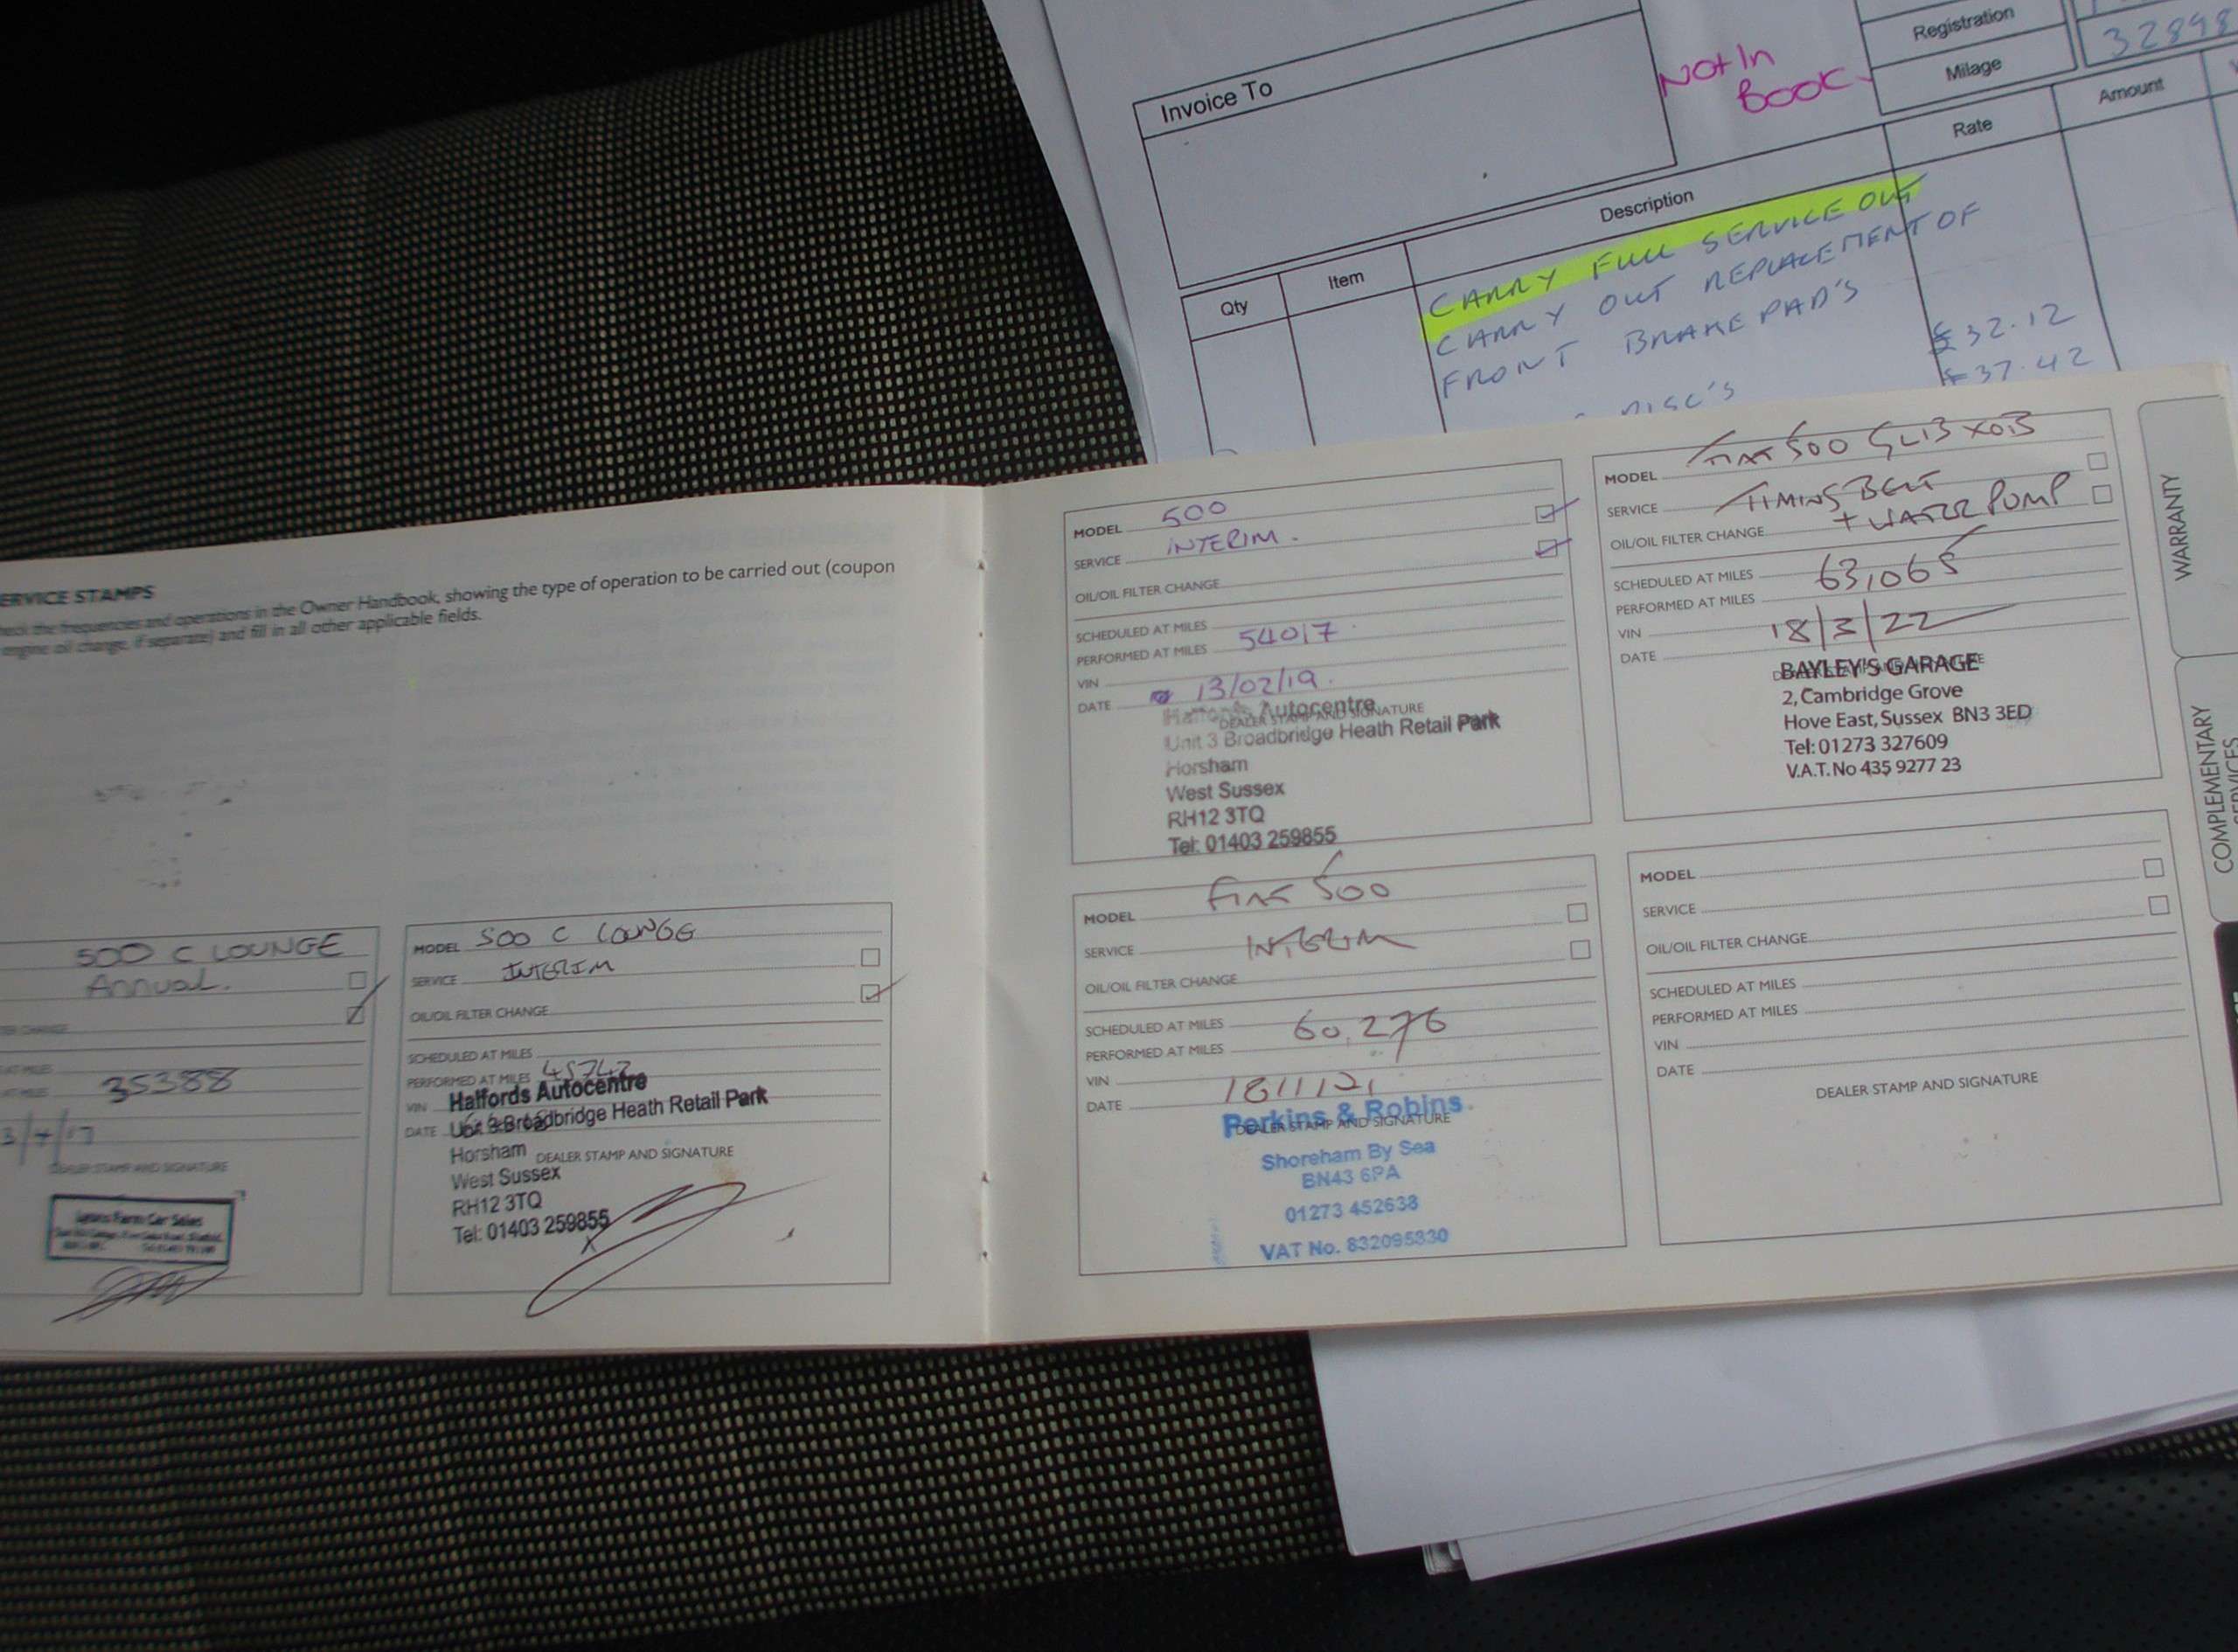 Registration
32898
Milage
Not In
Book
Invoice To
Qty
Item
Description
Rate
Amount
CARRY FULL SERVICE OUT
CARRY OUT REPLACEMENT OF
FRONT BRAKE PAD'S
£32.12
DISC'S
£37.42
ERVICE STAMPS
heck the frequencies and operations in the Owner Handbook, showing the type of operation to be carried out (coupon
engine oil change, if separate) and fill in all other applicable fields.
500 C LOUNGE
Annual.
35388
DEALER STAMP AND SIGNATURE
Farm Car Sales
MODEL 500 C LOUNGE
SERVICE INTERIM
OIL/OIL FILTER CHANGE
SCHEDULED AT MILES
PERFORMED AT MILES 45742
VIN
Halfords Autocentre
DATE
Unit 3 Broadbridge Heath Retail Park
Horsham
DEALER STAMP AND SIGNATURE
West Sussex
RH12 3TQ
Tel: 01403 259855
MODEL 500
SERVICE INTERIM.
OIL/OIL FILTER CHANGE
SCHEDULED AT MILES
PERFORMED AT MILES 54017
VIN
DATE 13/02/19.
Halfords Autocentre
DEALER STAMP AND SIGNATURE
Unit 3 Broadbridge Heath Retail Park
Horsham
West Sussex
RH12 3TQ
Tel: 01403 259855
MODEL FIAT 500
SERVICE INTERIM
OIL/OIL FILTER CHANGE
SCHEDULED AT MILES
PERFORMED AT MILES 60,276
VIN
DATE 18/1/21
Perkins & Robins
DEALER STAMP AND SIGNATURE
Shoreham By Sea
BN43 6PA
01273 452638
VAT No. 832095830
MODEL FIAT 500 GL13 XOB
SERVICE TIMING BELT
+ WATER PUMP
OIL/OIL FILTER CHANGE
SCHEDULED AT MILES
63,065
PERFORMED AT MILES
VIN
18/3/22
DATE
BAYLEY'S GARAGE
2, Cambridge Grove
Hove East, Sussex BN3 3ED
Tel: 01273 327609
V.A.T. No 435 9277 23
MODEL
SERVICE
OIL/OIL FILTER CHANGE
SCHEDULED AT MILES
PERFORMED AT MILES
VIN
DATE
DEALER STAMP AND SIGNATURE
WARRANTY
COMPLEMENTARY
SERVICES